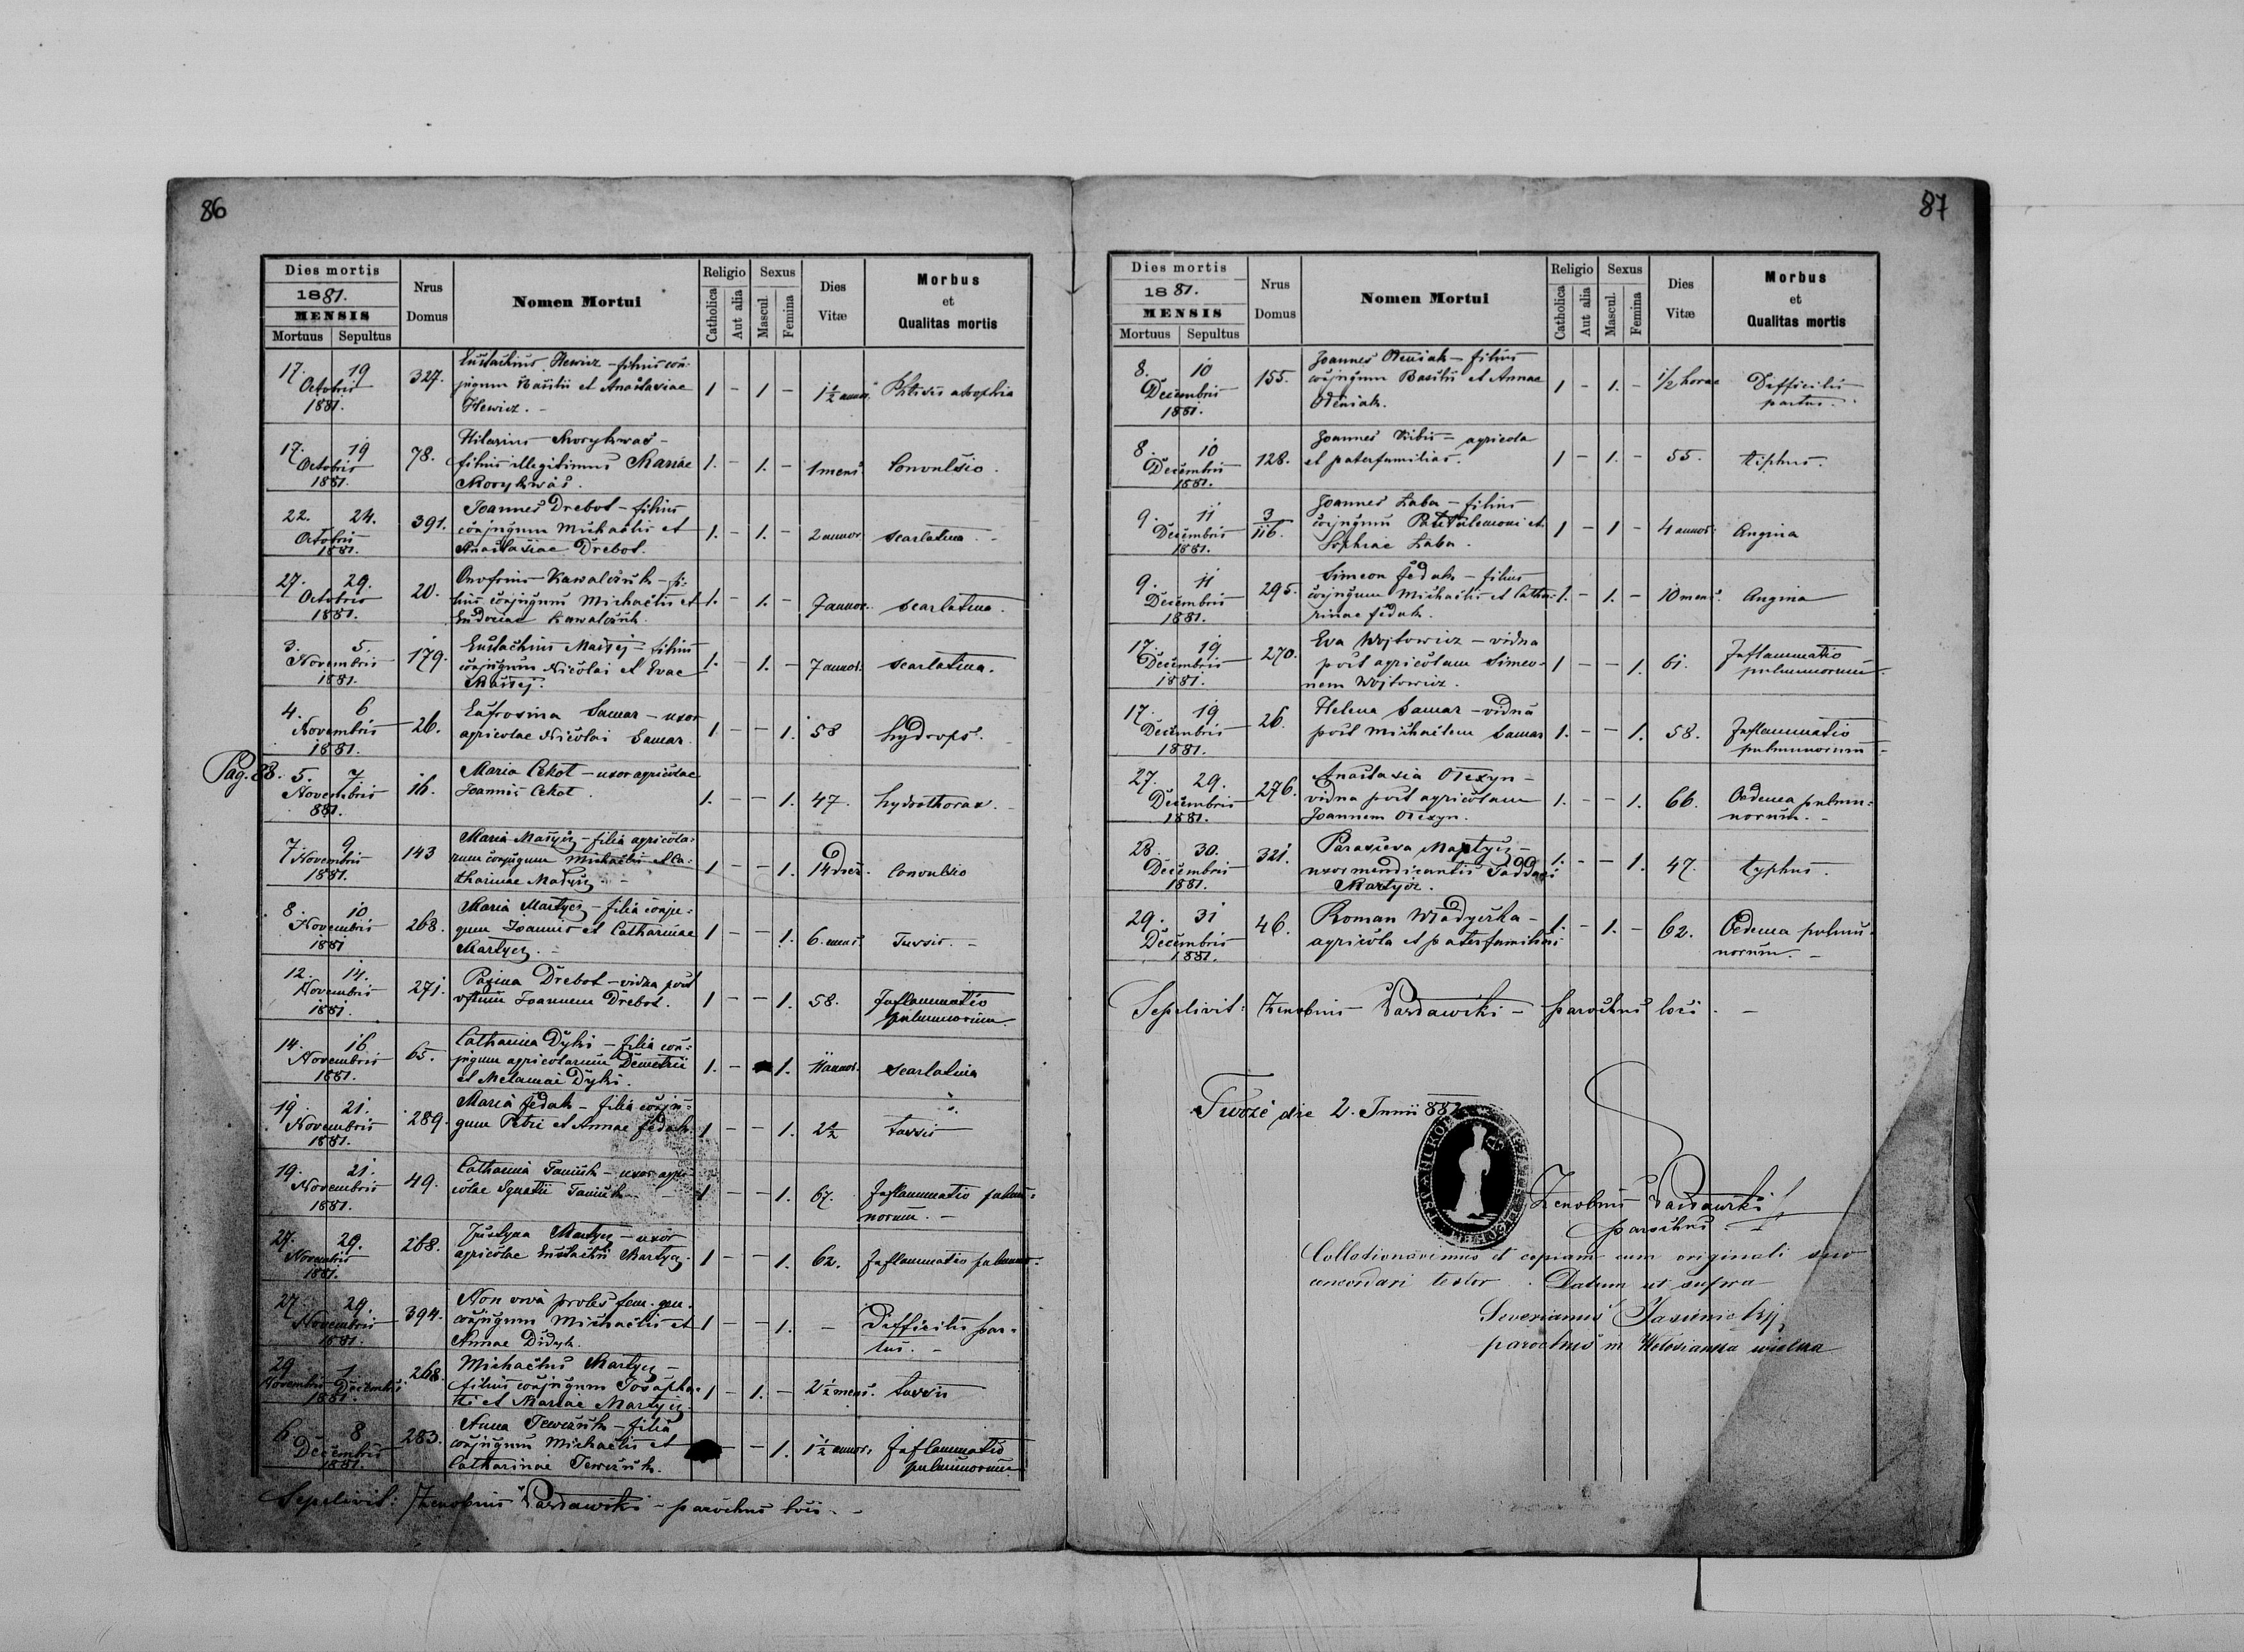 86
Dies mortis
1881.
MENSIS
Mortuus Sepultus
Nrus
Domus
Nomen Mortui
Religio
Catholica
Aut alia
Sexus
Mascul.
Femina
Dies
Vitæ
Morbus
et
Qualitas mortis
17. 19
Octobris
1881.
327.
Eustachius Hewicz – filius con-
jugum Basilii et Anastasiae
Hewicz. –
1 – 1 –
1½ annor.
Phtisis atrophia
17. 19
Octobris
1881.
78.
Hilarius –
filius illegitimus Mariae
1. – 1. –
1 mens.
Convulsio.
22. 24.
Octobris
1881.
391.
Joannes Drebot – filius
conjugum Michaelis et
Anastasiae Drebot.
1. – 1. –
2 annor.
scarlatina. –
27. 29.
Octobris
1881.
20.
Onofrius Kawalczuk – fi-
lius conjugum Michaelis et
Eudociae Kawalczuk.
1. – 1. –
7 annor.
scarlatina.
3. 5.
Novembris
1881.
179.
Eustachius – filius
conjugum Nicolai et Evae
1. – 1. –
7 annor.
scarlatina.
4. 6
Novembris
1881.
26.
Eufrosina Samar – uxor
agricolae Nicolai Samar.
1 – – 1.
58
hydrops. –
Pag. 88.
5. 7
Novembris
881.
16.
Maria Cekot – uxor agricolae
Joannis Cekot.
1. – – 1.
47.
hydrothorax. –
7. 9
Novembris
1881.
143
Maria – filia agricola-
rum conjugum Michaelis et Ca-
tharinae
1 – – 1.
14 dies.
Convulsio
8. 10
Novembris
1881
268.
Maria Martycz – filia conju-
gum Joannis et Catharinae
Martycz. –
1 – – 1.
6. mens.
Tussis. –
12. 14.
Novembris
1881.
271.
Drebot – vidua post
Joannem Drebot.
1 – – 1.
58.
Inflammatio
pulmonorum.
14. 16
Novembris
1881.
65.
Catharina Dyki – filia con-
jugum agricolarum Demetrii
et Melaniae Dyki.
1. – 1.
11 annor.
scarlatina
19. 21.
Novembris
1881.
289.
Maria Fedak – filia conju-
gum Petri et Annae Fedak.
1 – – 1.
2½
tussis
19. 21.
Novembris
1881.
49.
Catharina – uxor agri-
colae Ignatii
1 – – 1.
67.
Inflammatio pulmo-
norum. –
27. 29.
Novembris
1881.
268.
Justyna Martycz – uxor
agricolae Eustachii Martycz.
1 – – 1.
62.
Inflammatio pulmonor.
27 29.
Novembris
1881.
394.
Non viva proles fem. gen.
conjugum Michaelis et
Annae Didyk.
1 – – 1.
–
Difficilis par-
tus. –
29. 1
Novembris Decembris
1881.
268.
Michaelus Martycz –
filius conjugum Josapha-
ti et Mariae Martycz.
1 – 1. –
2½ mens.
tussis
6. 8
Decembris
1881.
283.
Anna – filia
conjugum Michaelis et
Catharinae
– – 1.
1½ annor.
Inflammatio
pulmonorum
Sepelivit: Zenobius – parochus loci. –
87
Dies mortis
1881.
MENSIS
Mortuus Sepultus
Nrus
Domus
Nomen Mortui
Religio
Catholica
Aut alia
Sexus
Mascul.
Femina
Dies
Vitæ
Morbus
et
Qualitas mortis
8. 10
Decembris
1881.
155.
Joannes – filius
conjugum Basilii et Annae
1 – 1. –
½ horae
Difficilis
partus.
8. 10
Decembris
1881.
128.
Joannes – agricola
et paterfamilias.
1 – 1. –
55.
tiphus.
9. 11
Decembris
1881.
3
116.
Joannes Łaba – filius
conjugum Pantalemoni et
Sophiae Łaba.
1 – 1 –
4 annor.
Angina
9. 11
Decembris
1881.
295.
Simeon Fedak – filius
conjugum Michaelis et Catha-
rinae Fedak.
1. – 1. –
10 mens.
Angina
17. 19
Decembris
1881.
270.
Eva Wojtowicz – vidua
post agricolam Simeo-
nem Wojtowicz.
1 – – 1.
61.
Inflammatio
pulmonorum.
17. 19
Decembris
1881.
26.
Helena Samar – vidua
post Michaelem Samar
1. – – 1.
58.
Inflammatio
pulmonorum –
27. 29.
Decembris
1881.
276.
Anastasia –
vidua post agricolam
Joannem
1. – – 1.
66.
Oedema pulmo-
norum. –
28. 30.
Decembris
1881.
321.
Parasceva Martycz –
uxor mendicantis Taddaei
Martycz.
1. – – 1.
47.
typhus.
29. 31
Decembris
1881.
46.
Roman Władyczka –
agricola et paterfamilias
1. – 1. –
62.
Oedema pulmo-
norum. –
Sepelivit: Zenobius – parochus loci. –
die 2. Junii 882
Zenobius
parochus
Collationavimus et copiam cum originali suo
concordari testor. Datum ut supra
Severianus
parochus in